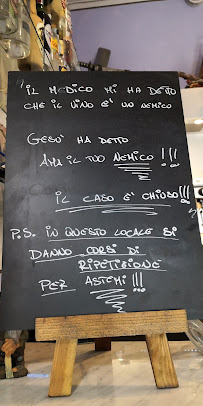 "IL MEDICO MI HA DETTO
CHE IL VINO E' UN NEMICO
GESU' HA DETTO
AMA IL TUO NEMICO !!!
IL CASO E' CHIUSO!!!
P.S. IN QUESTO LOCALE SI
DANNO CORSI DI
RIPETIZIONE
PER ASTEMI !!!